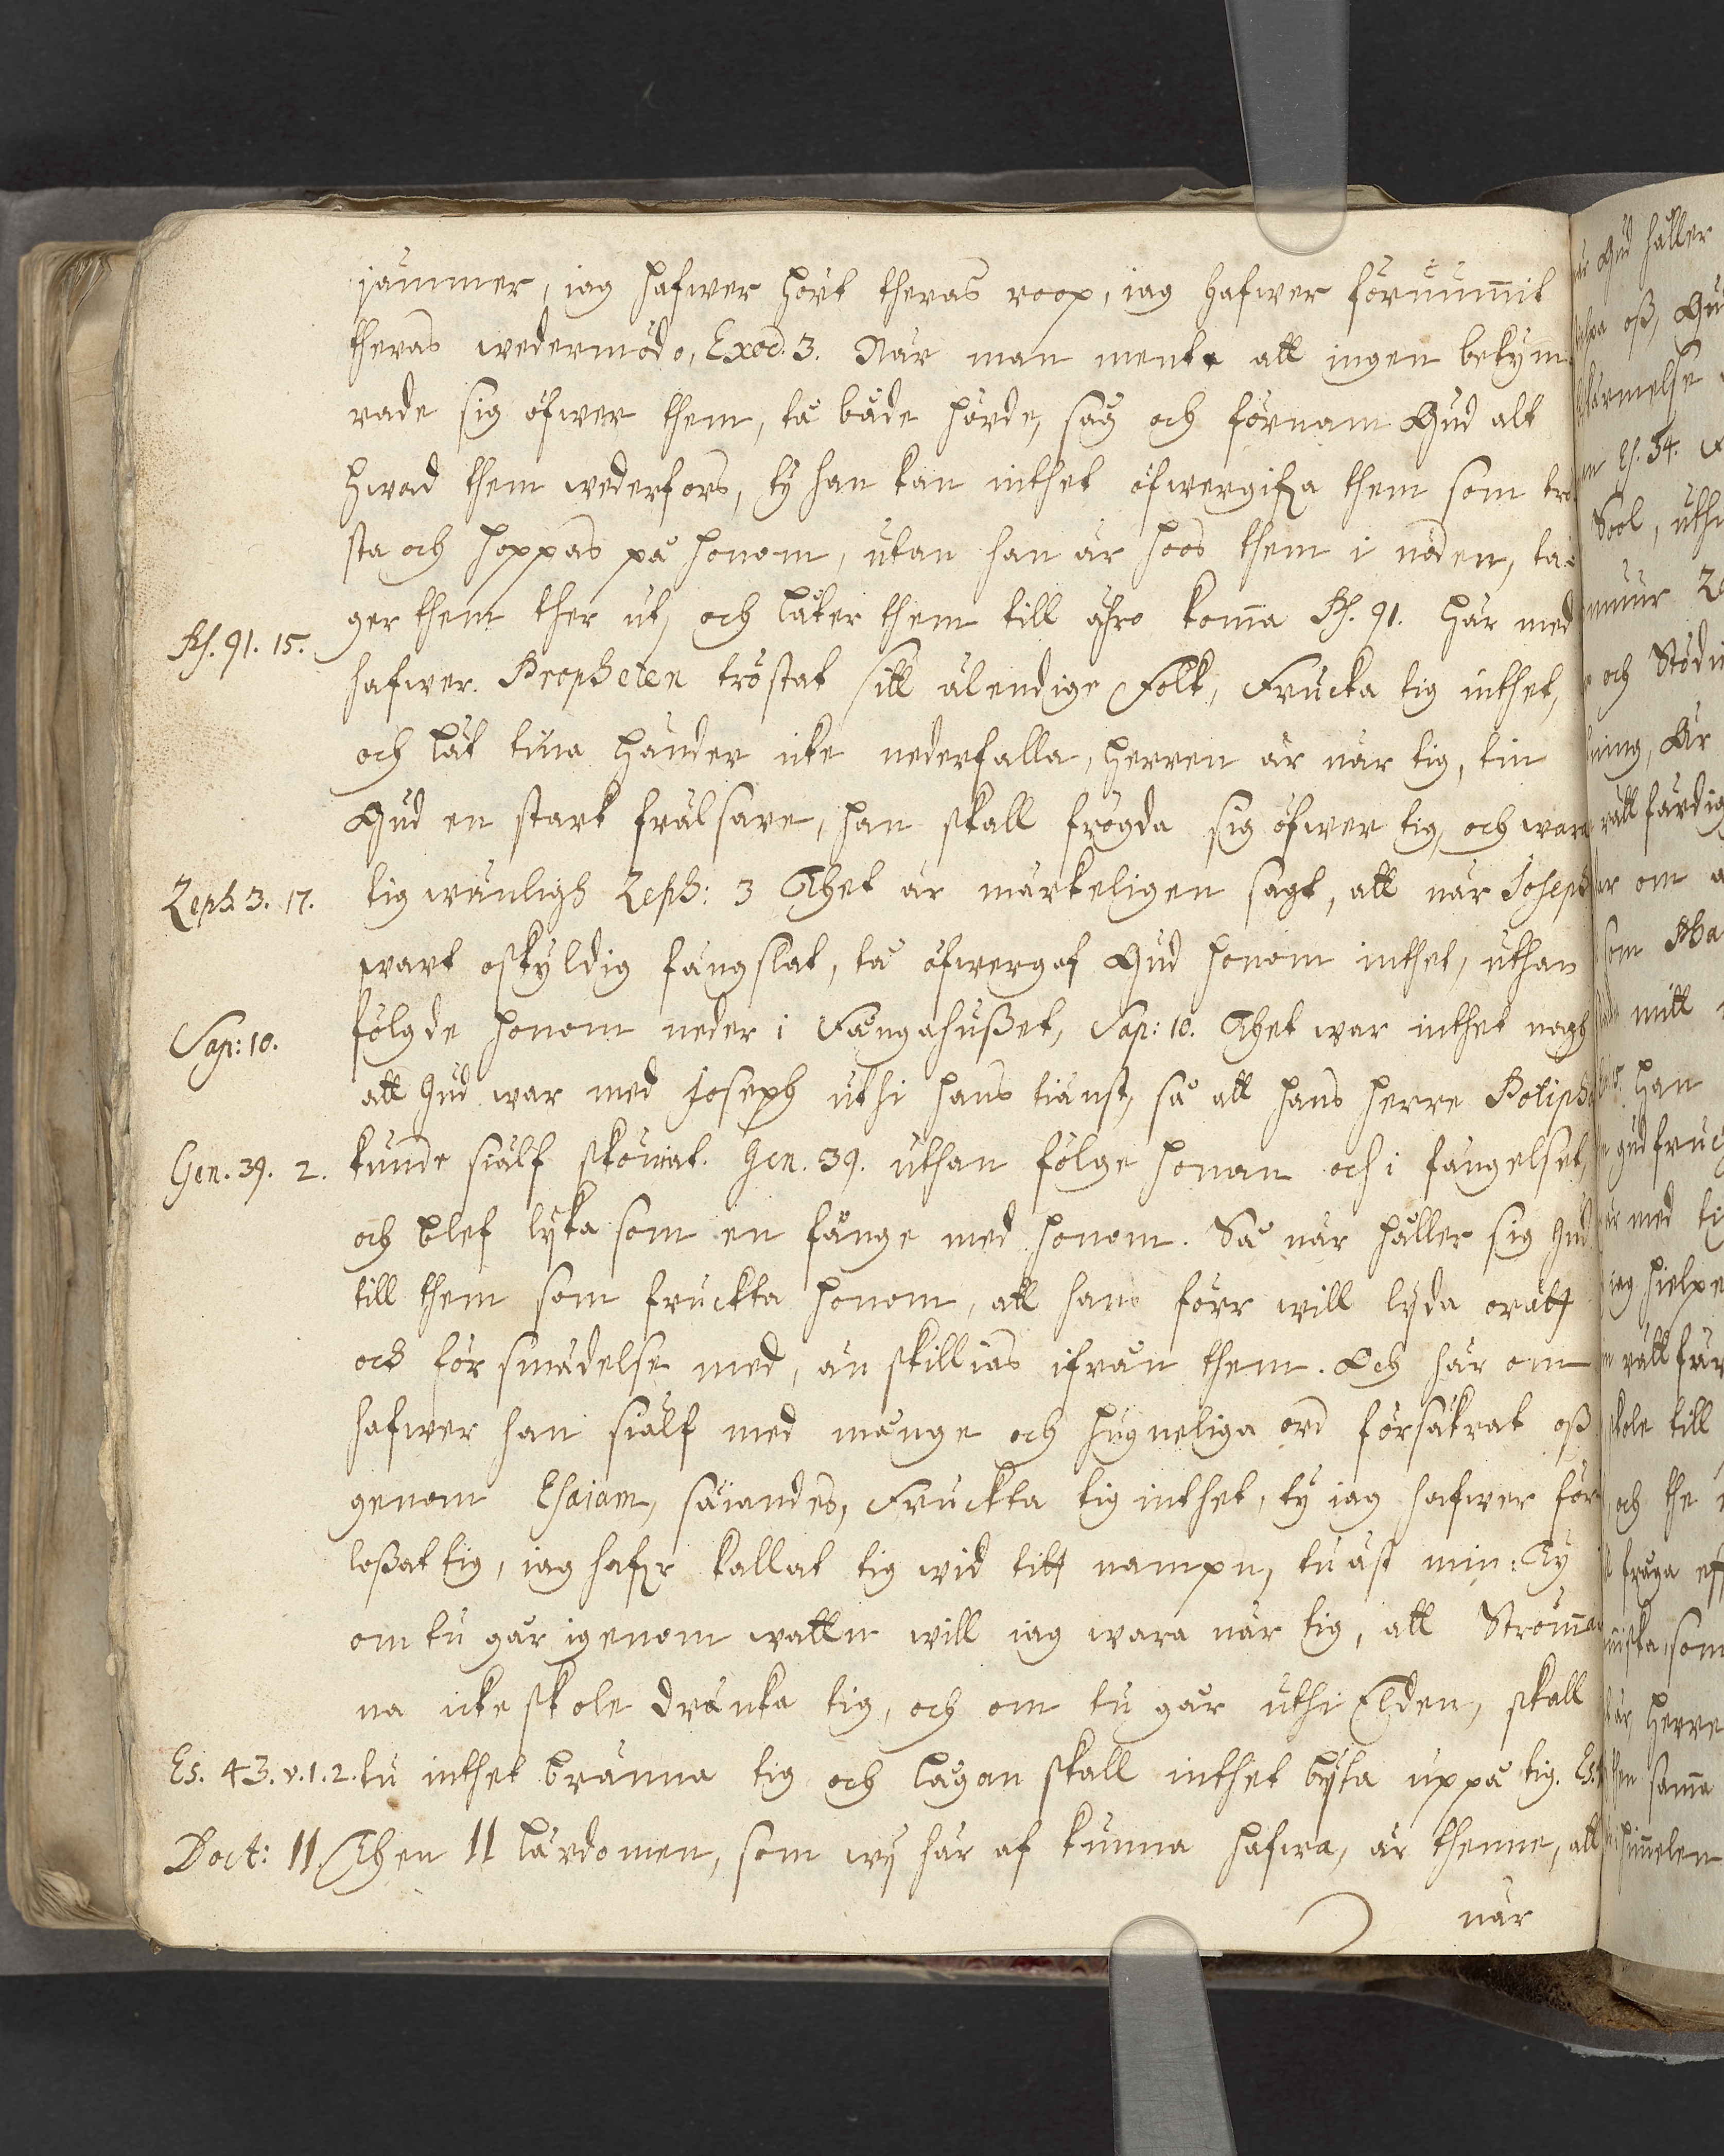 jämmer, iag hafwer hört theras roop, iag hafwer förnum̅it
theras wedermödo, Exod. 3. När man mente att ingen bekym
rade sig öfwer them, tå både hörde, såg och förnam Gud alt
hwad them wederfors, ty han kan inthet öfwergifa them som trö
sta och hoppas på honom, utan han är hoos them i nöden, ta-
ger them ther ut, och låter them till ähro kom̅a Ps. 91. Här med
Ps. 91. 15.
hafwer Propheten tröstat sitt älendige Folk, Frucka tig inthet,
och låt tina händer icke nederfalla, Herren är när tig, tin
Gud en stark frälsare, han skall frögda sig öfwer tig, och wara
tig wänligh Zeph: 3 Thet är märkeligen sagt, att när Joseph
Zeph. 3. 17.
wart oskyldig fängslat, tå öfwergaf Gud honom inthet, uthan
fölgde honom neder i Fångahußet, Sap: 10. Thet war inthet nogh
Sap: 10.
att Gud war med Joseph uthi hans tiänst, så att hans herre Potiph
kunde siälf sköniat. Gen. 39. uthan fölge honom och i fängelset,
Gen. 39. 2.
och blef lyka som en fånge med honom. Så när håller sig Gud
till them som fruckta honom, att hans förr will lyda orätt
och försmädelse med, än skillias ifrån them. Och här om
hafwer han siälf med månge och hugneliga ord försäkrat oß
genom Esaiam, säiandes, Fruckta tig inthet, ty iag hafwer för
loßat tig, iag hafr kallat tig wid titt nampn, tu äst min: Ty
om tu går igenom watln will iag wara när tig, att Ström̅ar
na icke skole dränka tig, och om tu går uthi Elden, skall
tu inthet bränna tig och lågan skall inthet byta uppå tig. Es.
Es. 43. v. 1. 2.
Doct: II Then II lärdomen, som wy här af kunna hafwa, är thenne, att
när